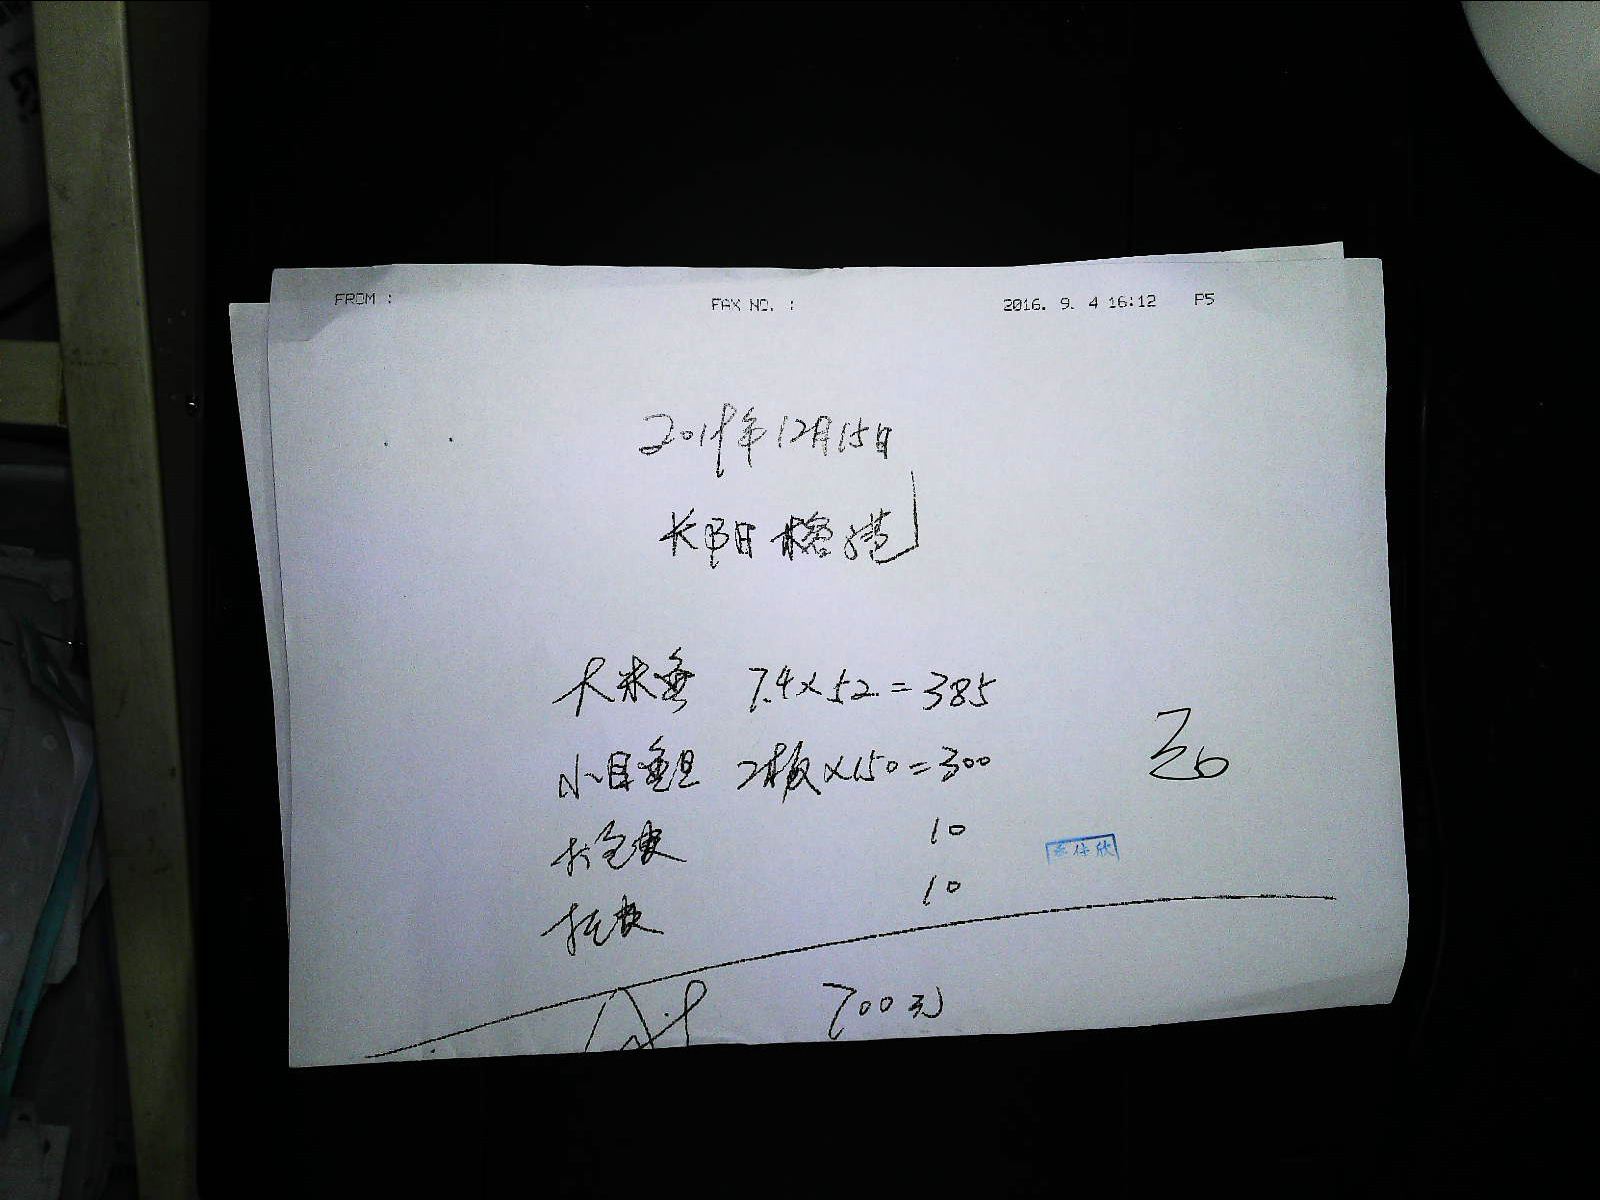 FROM :
FAX NO. :
2016. 9. 4 16:12
P5
2019年12月15日
长阳
大米鱼 7.4×52=385
小目鱼旦 2板×150=300
打包费 10
托费 10
700元